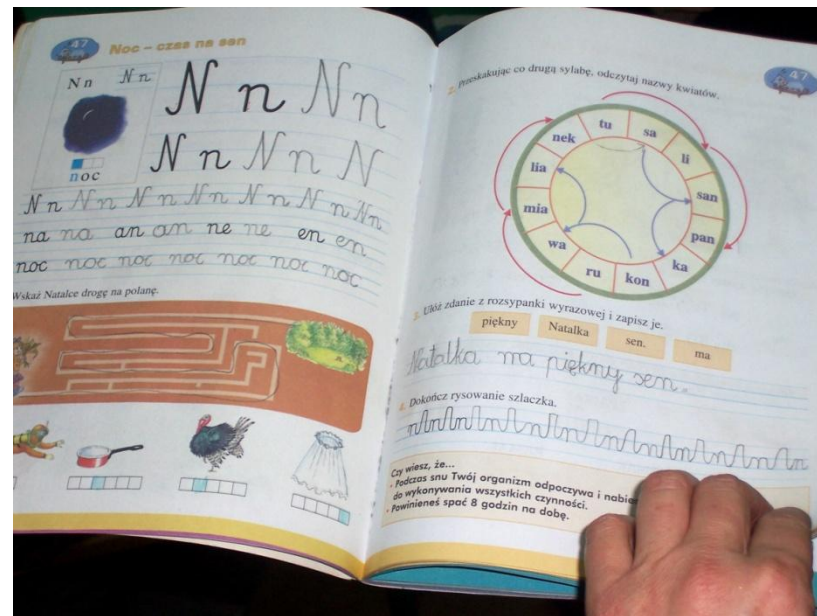 47
Noc – czas na sen
N n N n
noc
N n N n
N n N n N
N n N n N n N n N n N n N n
na na an an ne ne en en
noc noc noc noc noc noc noc
Wskaż Natalce drogę na polanę.
47
2. Przeskakując co drugą sylabę, odczytaj nazwy kwiatów.
tu
sa
li
san
pan
ka
kon
ru
wa
mia
lia
nek
3. Ułóż zdanie z rozsypanki wyrazowej i zapisz je.
piękny Natalka sen. ma
Natalka ma piękny sen.
4. Dokończ rysowanie szlaczka.
Czy wiesz, że...
• Podczas snu Twój organizm odpoczywa i nabie
do wykonywania wszystkich czynności.
• Powinieneś spać 8 godzin na dobę.